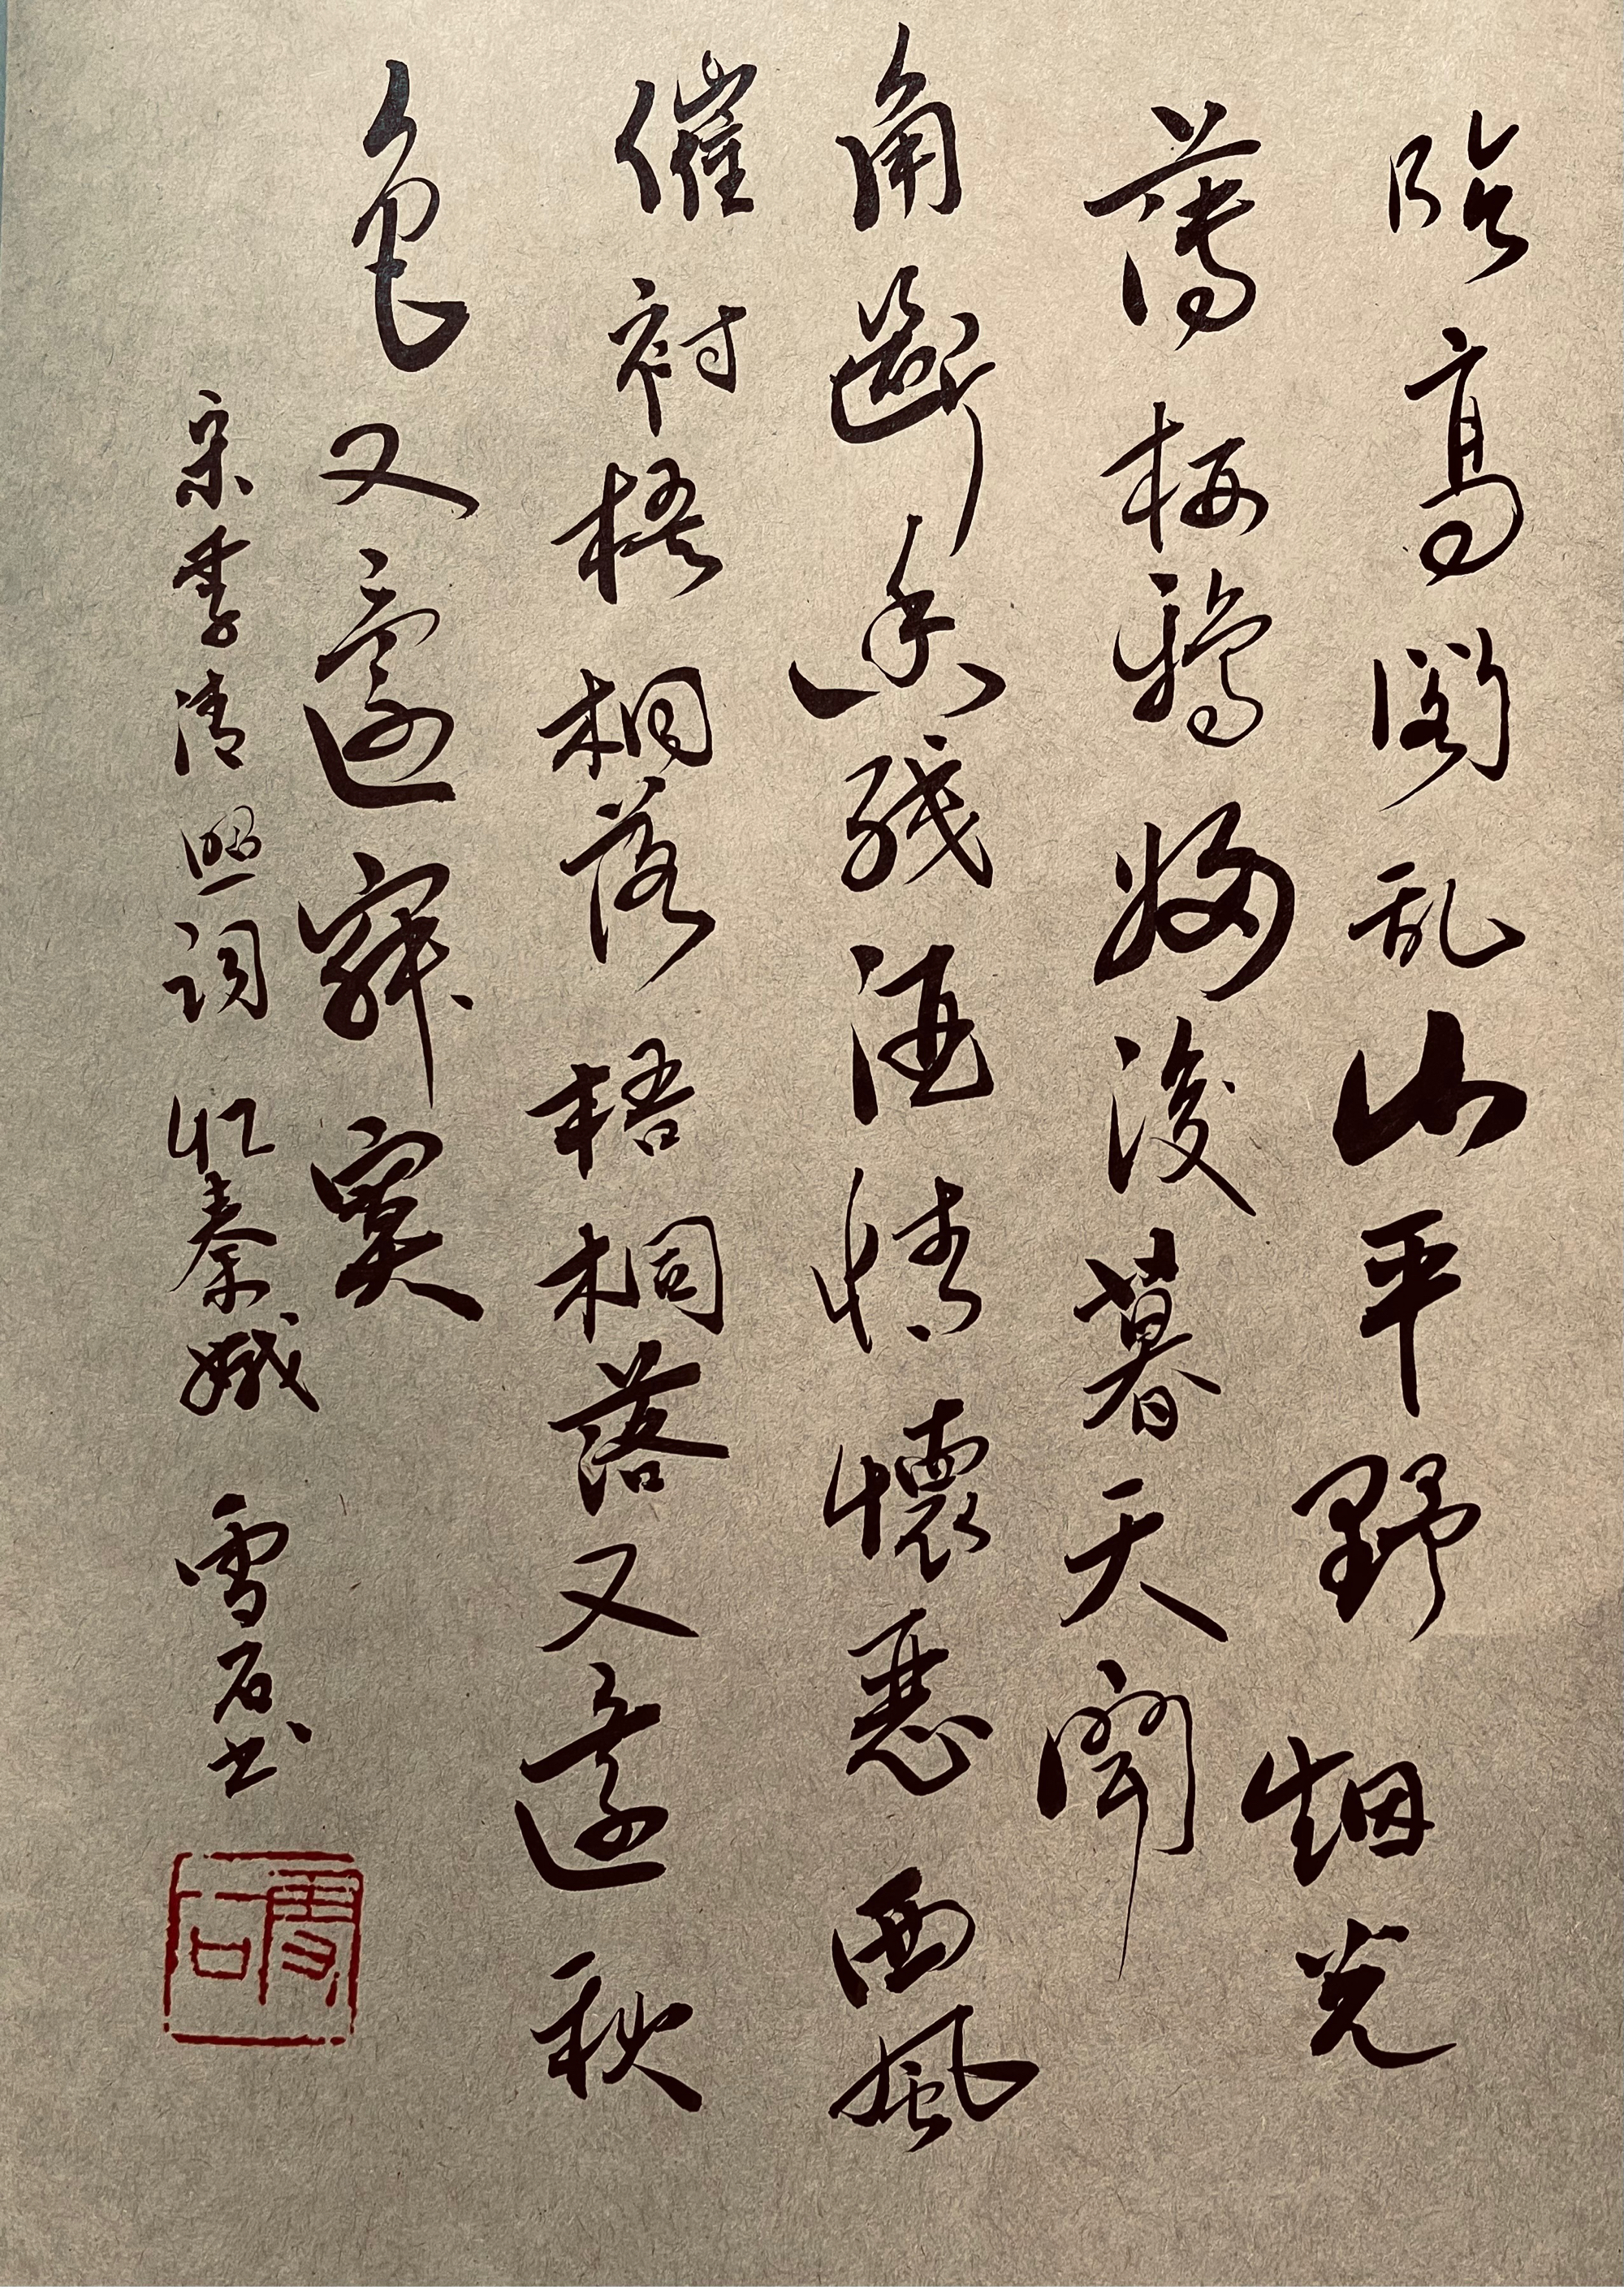 临高阁乱山平野烟光
薄栖鸦归後暮天闻
角断香残酒情懷恶西風
催衬梧桐落梧桐落又還秋
色又還寂寞
宋李清照词忆秦娥 雪石书
雪石